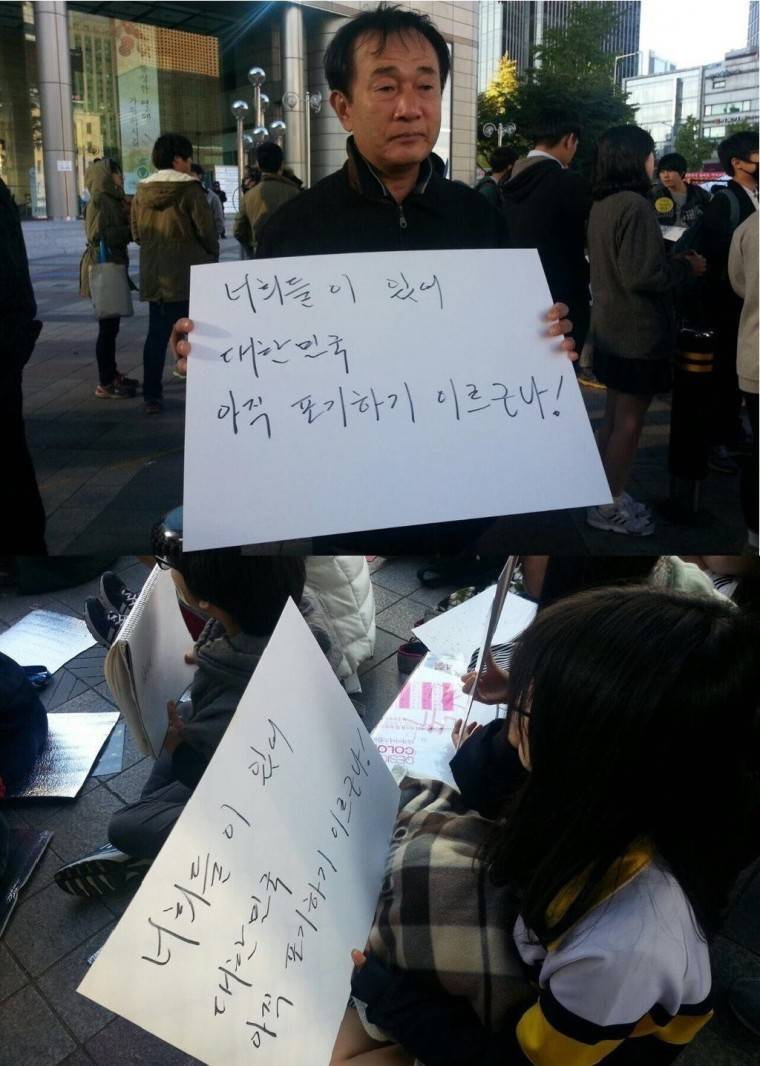 너희들이 있어
대한민국
아직 포기하기 이르구나!
너희들이 있어
대한민국
아직 포기하기 이르구나!